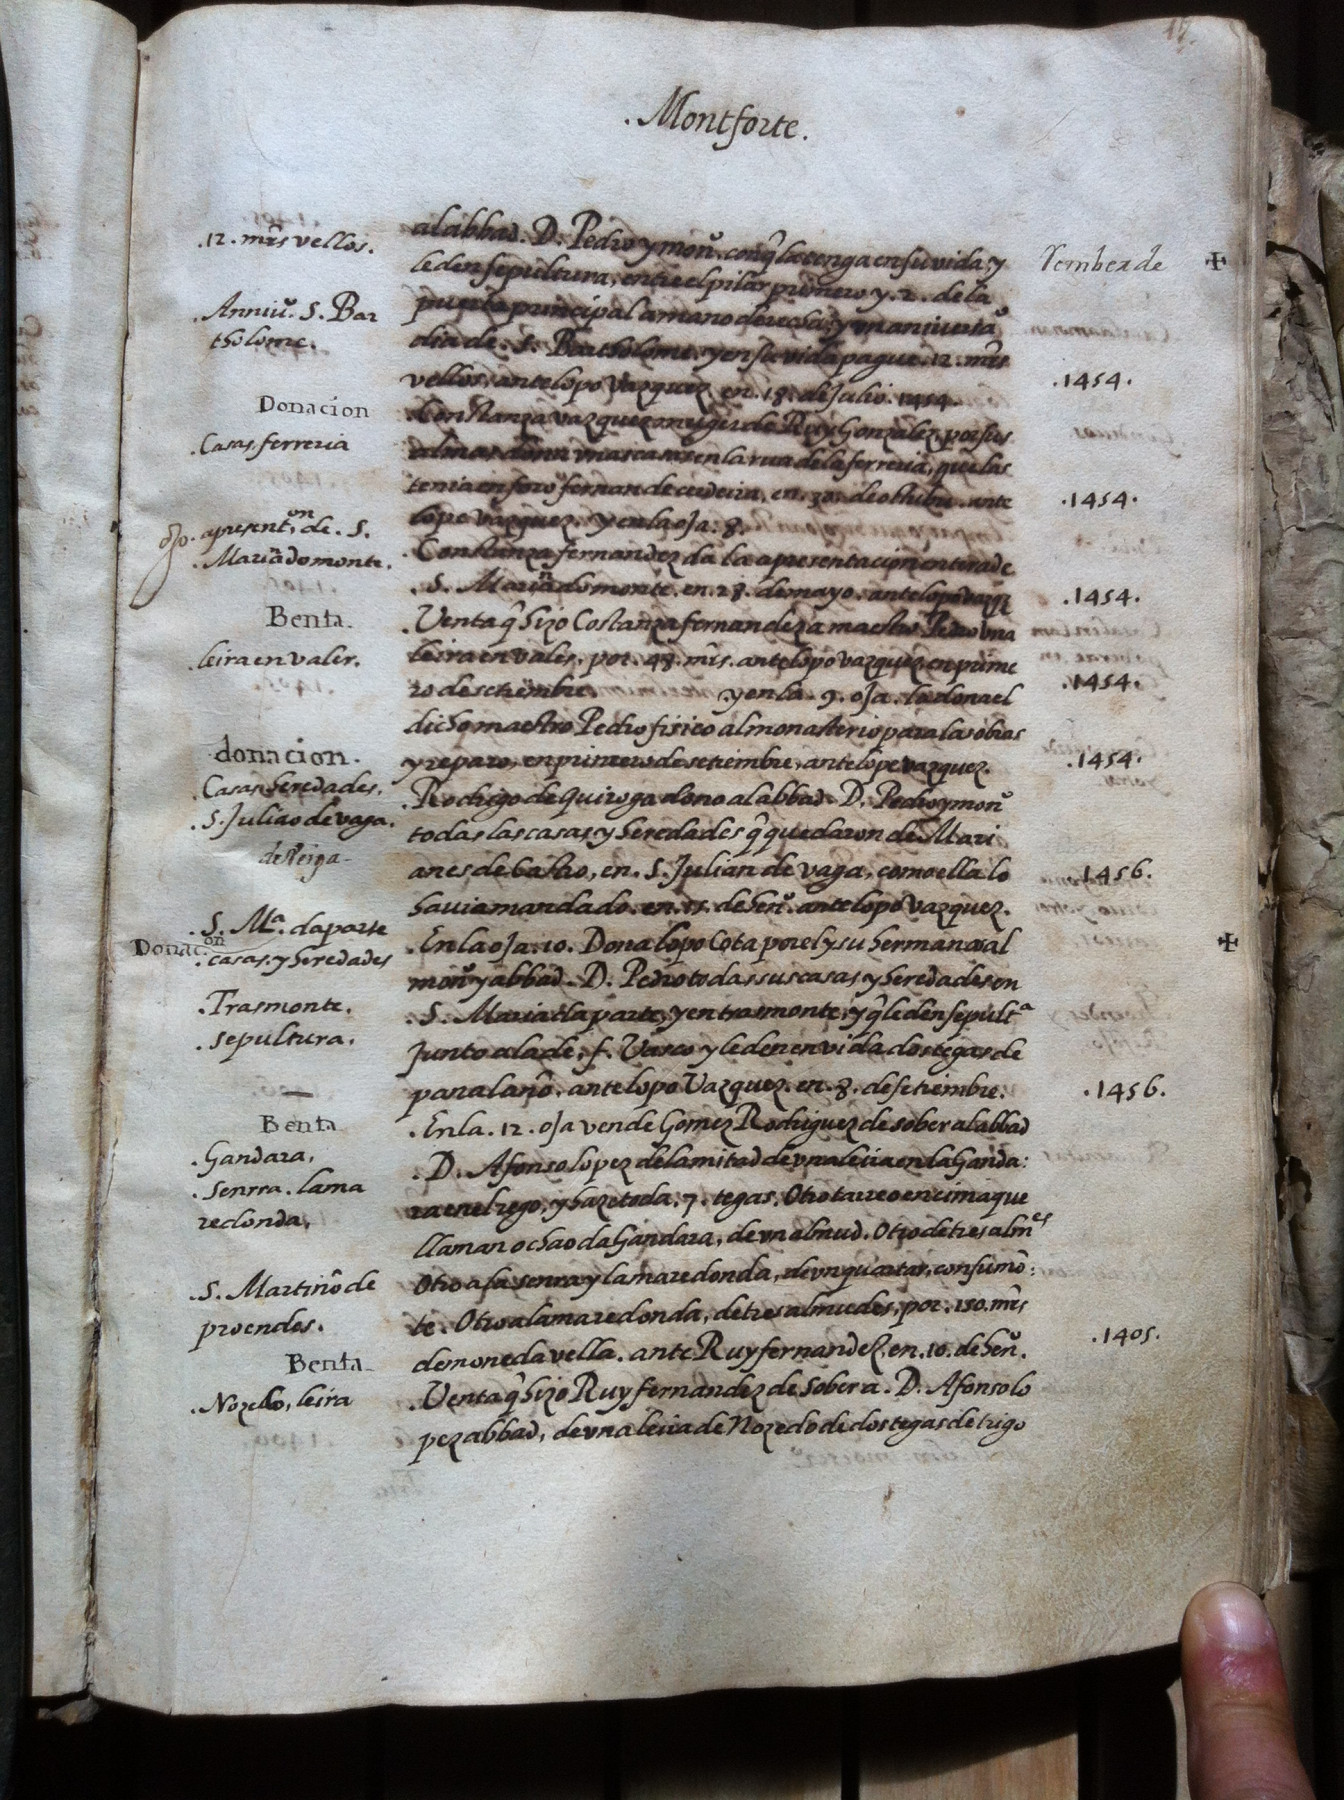 17.
.Montforte.
.12. mrs vellos.
al abbad. D. Pedro y moñ. conq̃ la tenga en su vida, y
le den sepultura, entre el pilar primero y .2. de la
puerta principal a mano derecha, y un aniverso
dia de .S. Bartholome. y en su vida pague .12. mrs
vellos, ante lopo Vazquez en .18. de Julio. 1454.
Tember de
.Anniu. S. Bar
tholome.
.1454.
Donacion
.Casas ferreria
.Constanza vazquez muger de Ruy Gonzalez, por sus
almas dona unas casas en la rua de la ferreria, que las
tenia en foro fernan de cerdeira, en .30. de othubre. ante
lopo Vazquez. y en la oJa. 8.
.1454.
oJo. apresenton. de. S.
.Maria do monte.
.Constanza fernandez da la apresentacion entera de
.S. Maria do monte. en .28. de mayo. ante lopo vazqz
.1454.
Benta.
.leira en valer.
.Venta q̃ hizo Costanza fernandez a maestro Pedro una
leira en valer, por .48. mrs. ante lopo vazquez, en prime
ro de setiembre. y en la .9. oJa. la dona el
dicho maestro Pedro fisico al monasterio para las obras
y reparo, en primero de setiembre, ante lope vazquez.
.1454.
.1454.
donacion.
.Casas heredades.
.S. Juliao de vaga.
de Reiga-
.Rodrigo de Quiroga dono al abbad D. Pedro y moñ
todas las casas, y heredades q̃ quedaron de Mari
anes de castro, en .S. Julian de vaga, como ella lo
havia mandado. en .11. de heñ. ante lopo Vazquez.
.1456.
.S. Ma. da parte
Donacon
.casas, y heredades
.Trasmonte.
.sepultura.
.En la oJa. 10. Dona lopo Cota por el y su hermana al
moñ y abbad. D. Pedro todas sus casas, y heredades en
.S. Maria da parte, y en trasmonte, y q̃ le den sepulta
Junto a la de, f. Vasco y le den en vida dos tegas de
pan al año. ante lopo Vazquez. en .8. de setiembre.
.1456.
Benta
.Gandara,
.Senrra. lama
redonda,
.En la .12. oJa vende Gomez Rodriguez de sober al abbad
.D. Afonso lopez de la mitad de una leira en la Ganda:
ra en el rego, y haze toda .7. tegas. Otro tarreo encima que
llaman o chao da Gandara, de un almud. Otro de tres almes
Otro a fa senra y lama redonda, de un quartar, con su mo:
te. Otro a lama redonda, de tres almudes, por .150. mrs
de moneda vella. ante Ruy fernandez, en .10. de heñ.
.S. Martino de
proendos.
.1405.
Benta-
.Nozedo, leira
.Venta q̃ hizo Ruy fernandez de Sober a .D. Afonso lo
pez abbad, de una leira de Nozedo de dos tegas de trigo